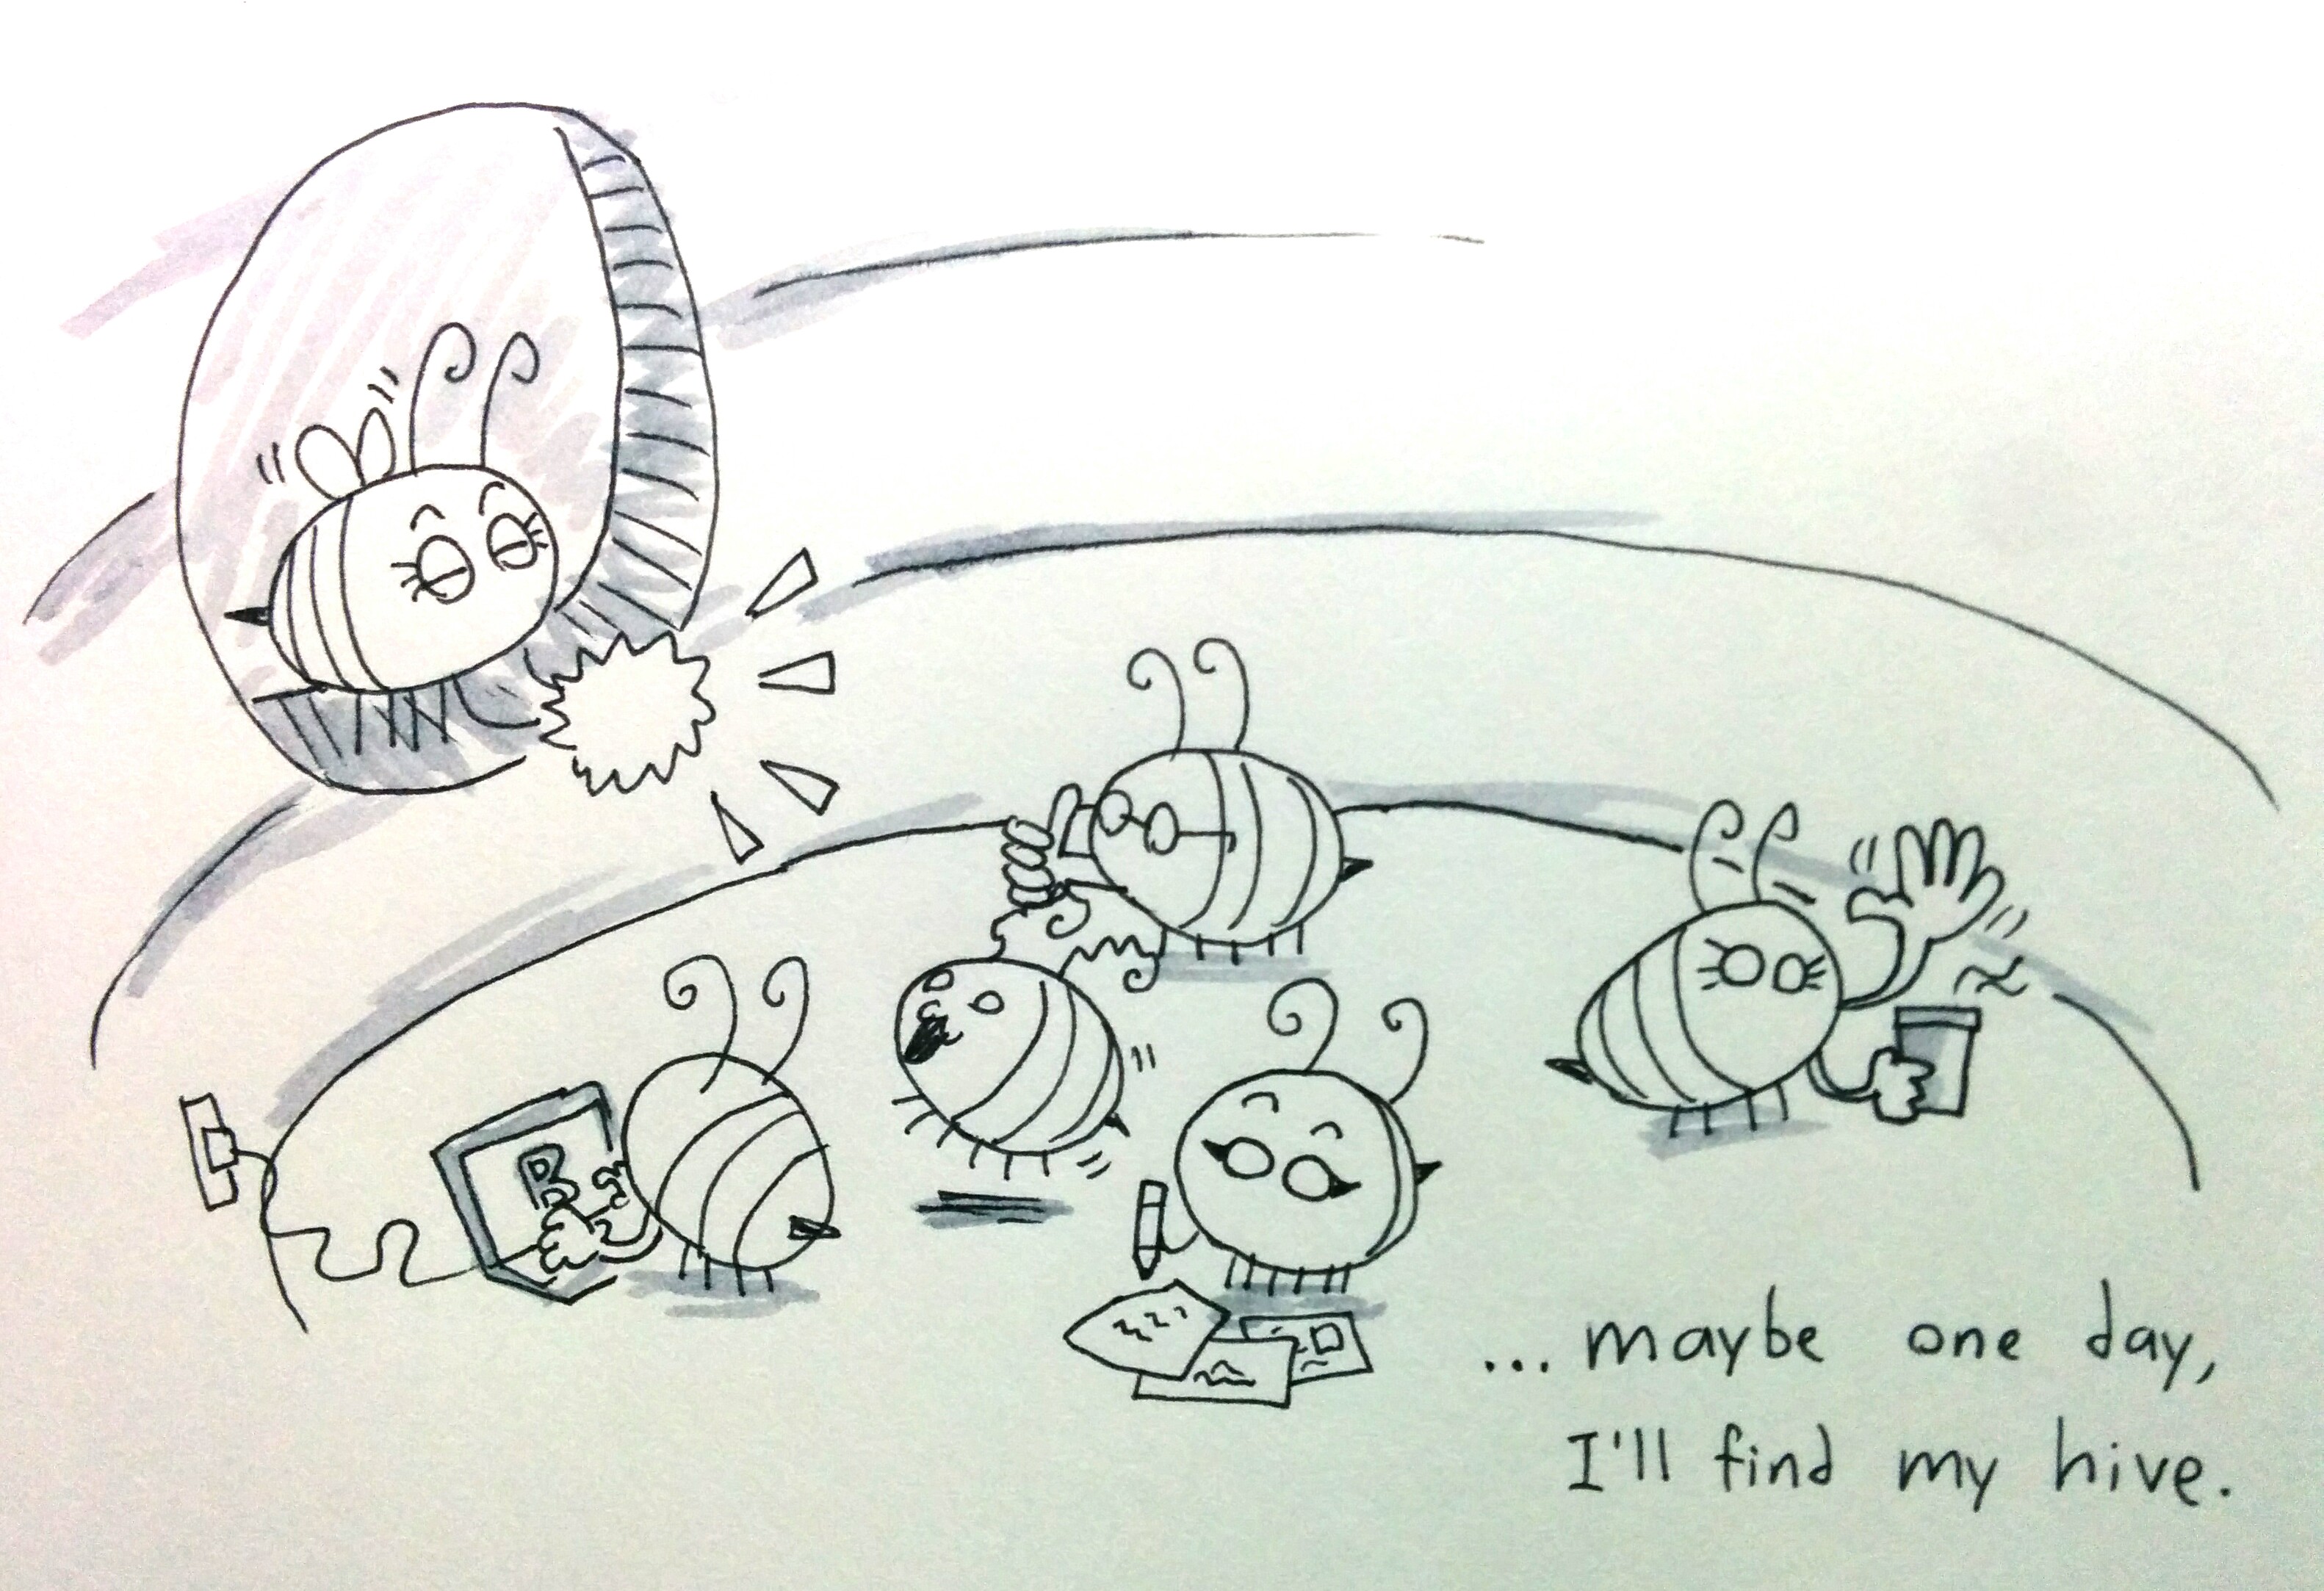 R
... maybe one day,
I'll find my hive.